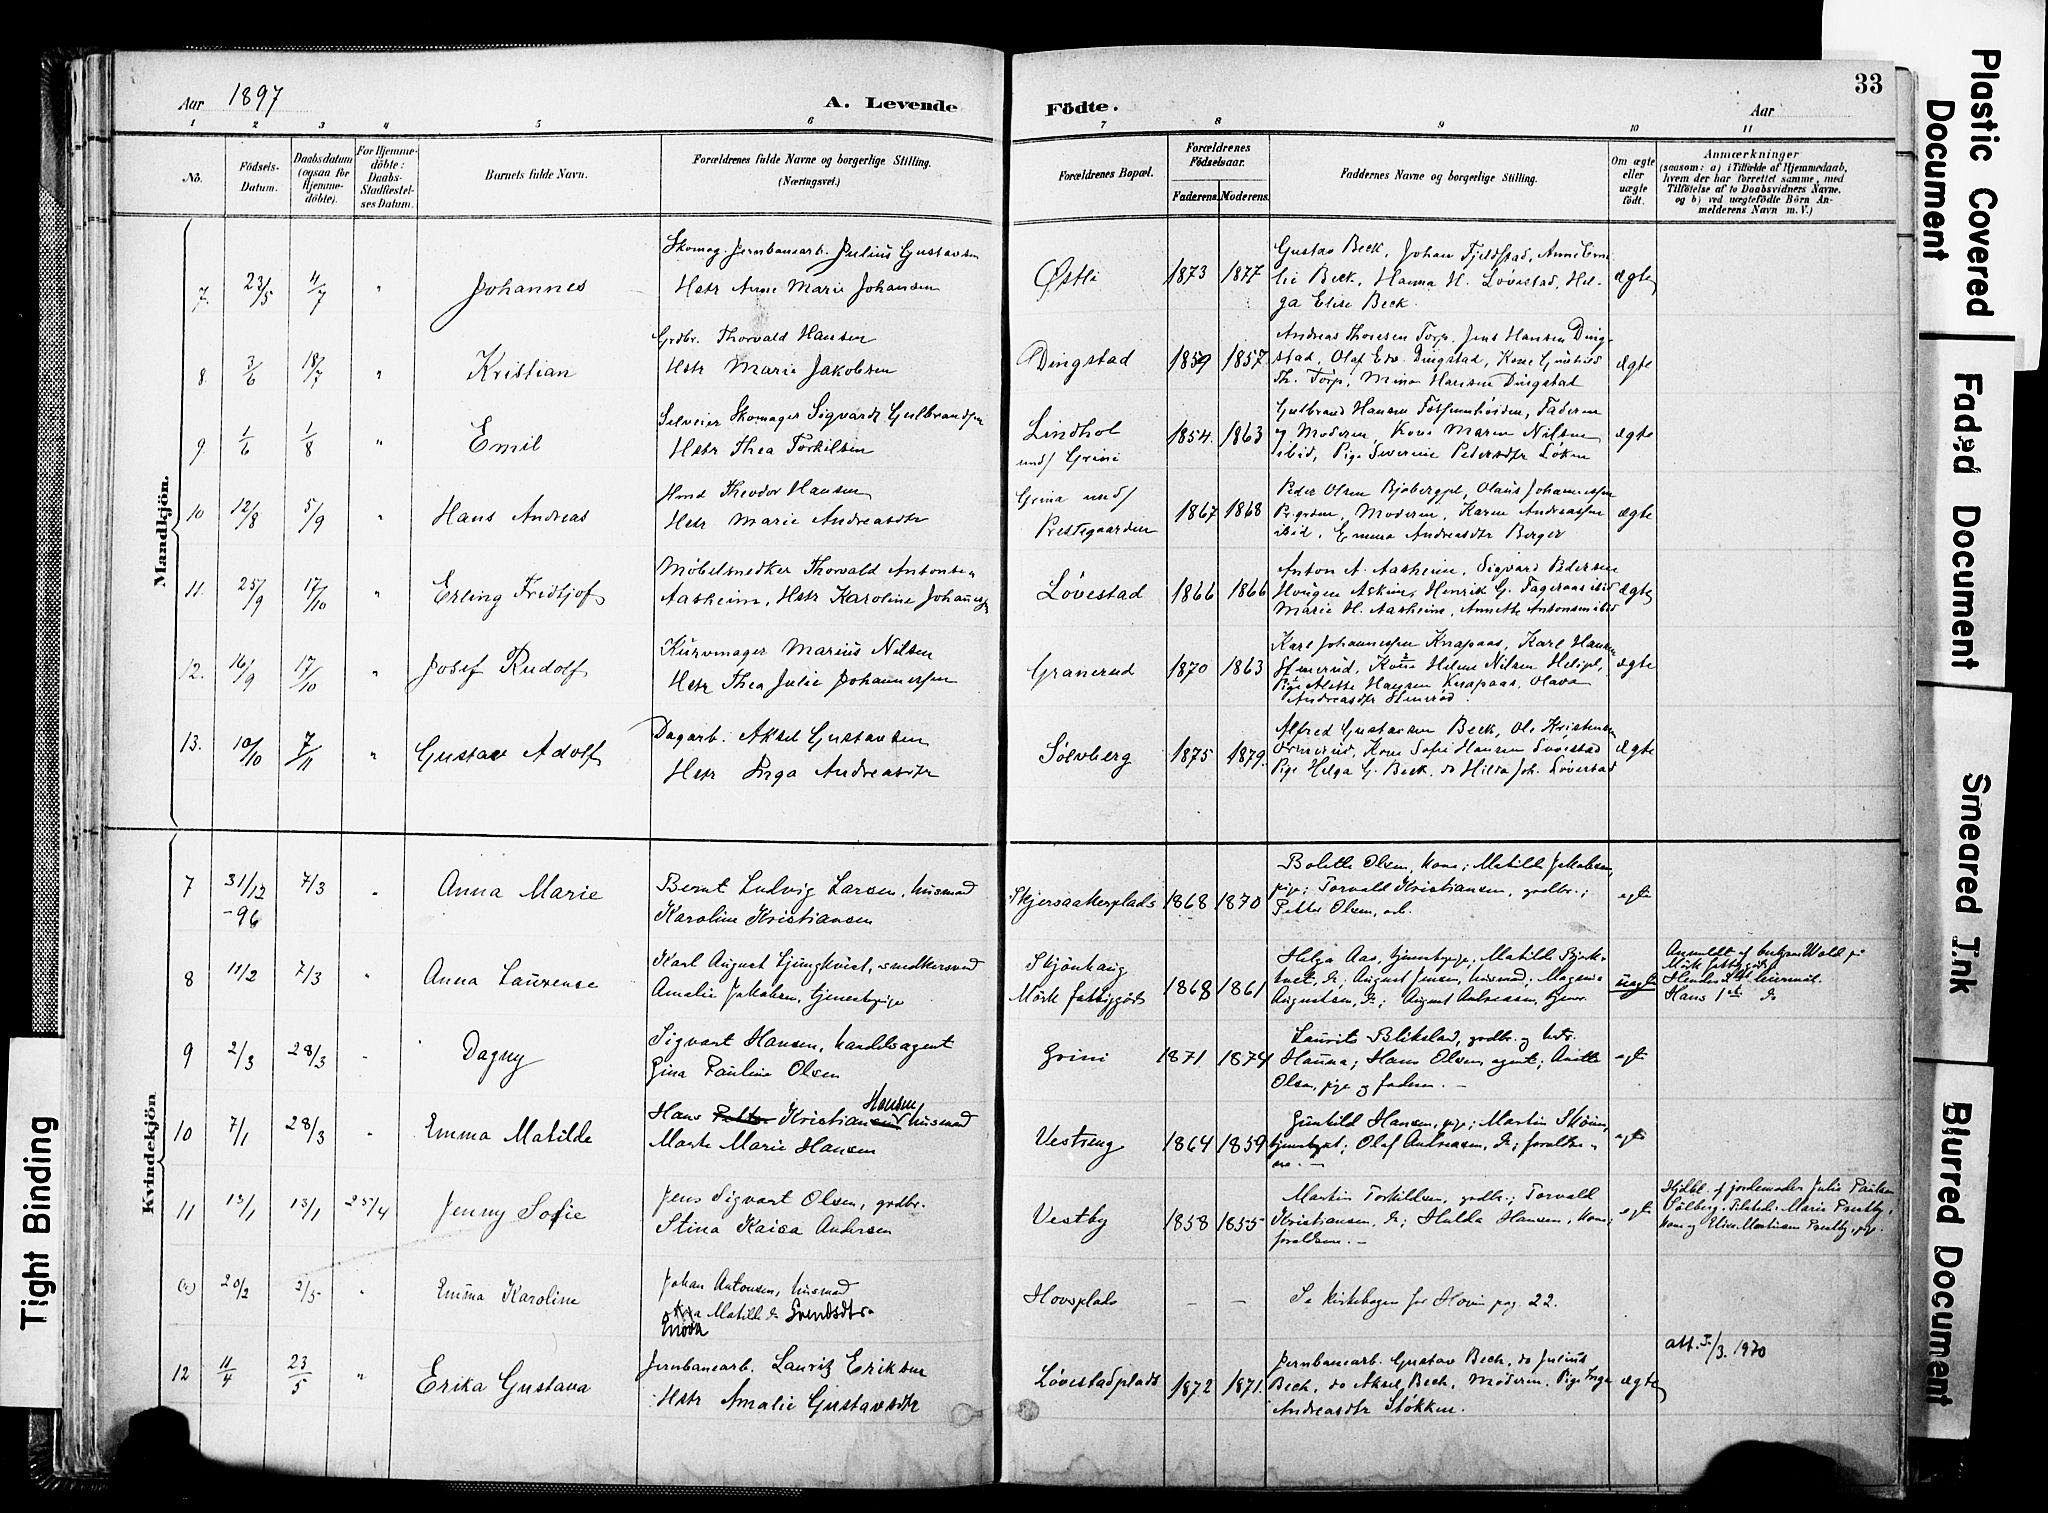 Aar 1897
A. Levende
Födte.
Aar
33
1 2 3 4 5 6 7 8 9 10 11
No.
Födsels-
Datum.
Daabsdatum
(ogsaa for
Hjemme-
döbte).
For Hjemme-
döbte:
Daabs-
Stadfæstel-
ses Datum.
Barnets fulde Navn.
Forældrenes fulde Navne og borgerlige Stilling.
(Næringsvei.)
Forældrenes Bopæl.
Forældrenes
Födselsaar.
Faderens. Moderens.
Faddernes Navne og borgerlige Stilling.
Om ægte
eller
uægte
født.
Anmærkninger
(saasom: a) i Tilfælde af Hjemmedaab,
hvem der har forrettet samme, med
Tilföielse af to Daabsvidners Navne.
og b) ved uægtefödte Börn An-
melderens Navn m. V.)
Mandkjön.
7. 23/5 4/7 " Johannes
Skomag. Jernbanearb. Julius Gustavsen
Hstr Anne Marie Johansen
Østli 1873 1877
Gustav Beck, Johan Fjeldstad, Anne Emi
lie Beck, Hanna H. Løvestad, Hel-
ga Elise Beck.
Ægte
8. 3/6 18/7 " Kristian
Grdbr. Thorvald Hansen
Hstr Marie Jakobsen
Dingstad 1859 1857
Andreas Thoresen Torp, Jens Hansen Ding-
stad, Olaf Edv. Dingstad, Kone Gunhild
Th. Torp, Mina Hansen Dingstad
Ægte
9. 1/6 1/8 " Emil
Selveier Skomager Sigvardt Gulbrandsen
Hstr Thea Torkilsen
Lindhol
und/ Grini
1854. 1863
Gulbrand Hansen Fossumhøiden, Faderen
og Moderen, Kone Maren Nilsen
ibid, Pige Severine Petersdtr Løken
Ægte
10 12/8 5/9 " Hans Andreas
Hmd Theodor Hansen
Hstr Marie Andreasdtr
Grina und/
Prestegaarden
1867 1868
Peder Olsen Bjobergpl, Olaus Johannessen
Pr.grden, Moderen, Karen Andreassen
ibid, Emma Andreasdtr Berger
Ægte
11. 25/9 17/10 " Erling Fridtjof
Møbelsnedker Thorvald Antonsen
Aasheim, Hstr Karoline Johannesen
Løvestad 1866 1866
Anton A. Aasheim, Sigvard Pedersen
Hougen Askim, Henrik G. Fageraas ibid
Marie H. Aasheim, Annette Antonsen ibid
Ægte
12. 16/9 17/10 " Josef Rudolf
Kurvmager Marius Nilsen
Hstr Thea Julie Johannessen
Granerud 1870 1863
Karl Johannessen Knapaas, Karl Hansen
Stenerud, Kone Helene Nilsen Helipl,
Pige Alette Hansen Knapaas, Olava
Andreasdtr Stenerød.
Ægte
13. 10/10 7/11 " Gustav Adolf
Dagarb. Aksel Gustavsen
Hstr Inga Andreasdtr
Solvberg 1875 1879.
Alfred Gustavsen Beck, Ole Kristensen
Ormerud, Kone Sofie Hansen Løvestad
Pige Helga G. Beck, do Hilda Joh. Løvestad
Ægte
Kvindekjön
7 31/12 -96 7/3 " Anna Marie
Bernt Ludvig Larsen, husmand
Karoline Kristiansen
Skjersaakerplads 1868 1870
Bolette Olsen, kone; Matilde Jakobsen,
pige; Torvald Kristiansen, grdbr.;
Petter Olsen, arb.
egte
8 11/2 7/3 " Anna Laurense
Karl August Ljungkvist, snedkersvend
Amalie Jakobsen, tjenestepige
Skjønhaug
Mörk fattiggods
1868 1861
Helga Aas, tjenestepige; Matilde Bjerke-
tvet, do; August Jensen, husmand; Magnus
Augustsen, do; August Andreasen, tjener
uegte
Anmeldt af bestyrer Wold paa
Mörk fattiggods
Hendes 2det leiermaal.
Hans 1ste do
9 2/3 28/3 " Dagny
Sigvart Hansen, handelsagent
Gina Pauline Olsen
Grini 1871 1874
Laurits Blikstad, grdbr. og hstr.
Hanna; Hans Olsen, agent; Anette
Olsen, pige og faderen. —
egte
10 7/1 28/3 " Emma Matilde
Hans Petter Kristiansen Hansen, husmand
Marte Marie Hansen
Vestreng 1864 1859
Gunhild Hansen, pige; Martin Skøien,
tjenestegut; Olaf Andreasen, do; foreldre-
ne. —
egte
11 13/1 13/1 25/4 Jenny Sofie
Jens Sigvart Olsen, grdbr.
Stina Kaisa Andersen
Vestby 1858 1855
Martin Torkildsen, grdbr.; Torvald
Kristiansen, do; Hulda Hansen, kone;
foreldrene. —
egte
Hjdbt. af jordemoder Julie Paulsen
Sölberg. Tilstede: Marie Prestby,
kone og Elise Martinsen Prestby, pige.
20/2 2/5 " Emma Karoline
Johan Antonsen, husmand
Matilde Svendsdtr
Hovsplads — —
Se kirkebogen for Hovin pag. 22.
12 11/4 23/5 " Erika Gustava
Jernbanearb. Lauritz Eriksen
Hstr Amalie Gustavsdtr
Løvestadplads 1872 1871.
Jernbanearb. Gustav Beck, do Julius
Beck, do Aksel Beck, Moderen, Pige Inga
Andreasdtr Støkken.
Ægte
att. 5/3. 1970
Plastic Covered
Document
Faded Document
Smeared Ink
Blurred Document
Tight Binding